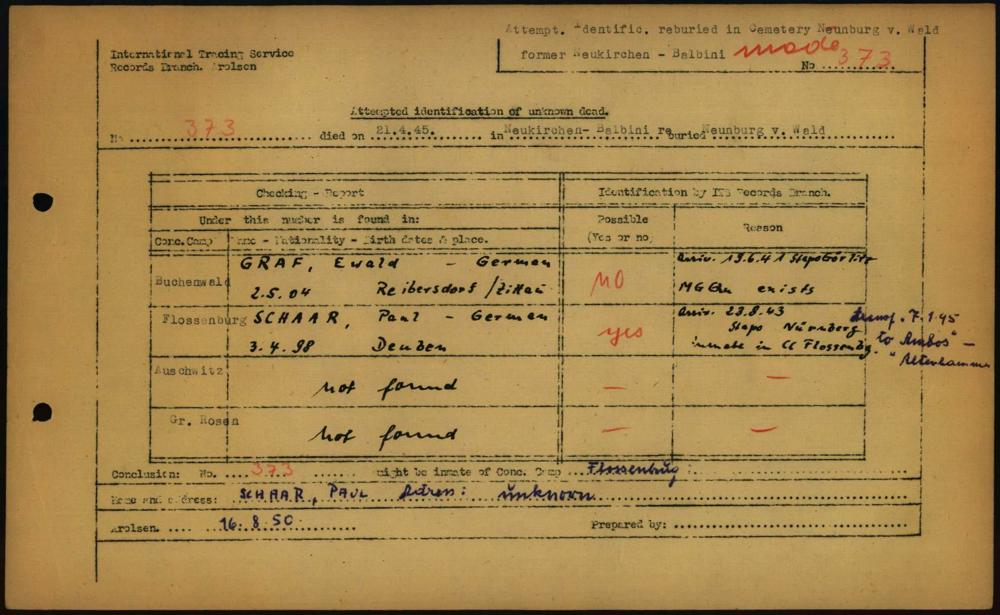 Attempt. Identific. reburied in Cemetery Neunburg v. Wald
former Neukirchen - Balbini made
No ........373
International Tracing Service
Records Branch. Arolsen
Attempted identification of unknown dead.
No ......373...... died on 21.4.45. in Neukirchen- Balbini reburied Neunburg v. Wald
Checking - Report
Identification by ITS Records Branch.
Under this number is found in:
Possible
(Yes or no)
Reason
Conc.Camp Name - Nationality - Birth dates & place.
Buchenwald
GRAF, Ewald - German
2.5.04 Reibersdorf /Zittau
NO
Arriv. 19.6.41 Stapo Görlitz
exists
Flossenburg
SCHAAR, Paul - German
3.4.98 Deuben
yes
Arriv. 23.8.43
Stapo Nürnberg
inmate in CC Flossenbg.
transf. 7.1.45
to
"Altenhammer
Auschwitz
not found
— —
Gr. Rosen
Not found
— —
Conclusion: No. ....373...... might be inmate of Conc. Camp ...Flossenbürg
Name and address: SCHAAR, PAUL Adress: unknown
Arolsen. .... 16.8.50............
Prepared by: ..............................